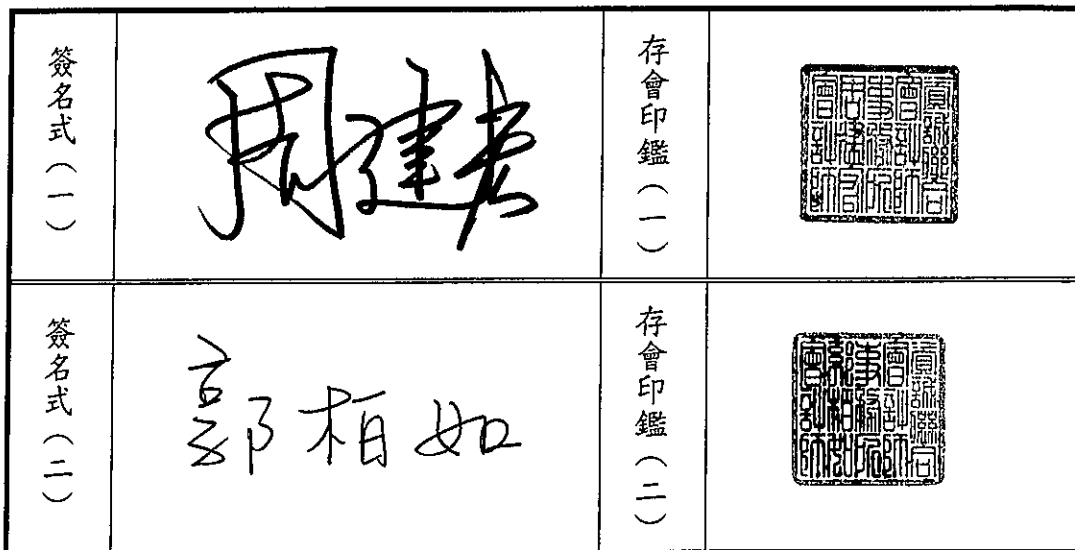 簽名式（一）
周建宏
存會印鑑（一）
資誠聯合
會計師
事務所
周建宏
會計師
簽名式（二）
郭柏如
存會印鑑（二）
資誠聯合
會計師
事務所
郭柏如
會計師